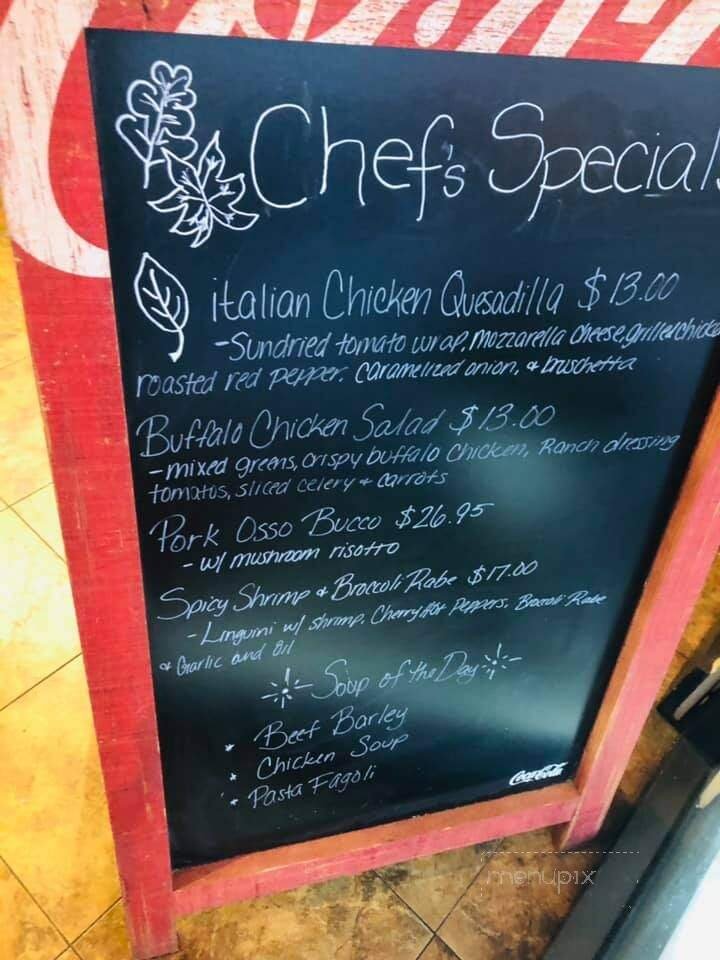 Chef's Specials
italian Chicken Quesadilla $13.00
-Sundried tomato wrap, Mozzarella Cheese, grilled chicke
roasted red pepper, caramelized onion, & bruschetta
Buffalo Chicken Salad $13.00
-mixed greens, crispy buffalo Chicken, Ranch dressing
tomatos, sliced celery + carrots
Pork Osso Bucco $26.95
- w/ mushroom risotto
Spicy Shrimp & Broccoli Rabe $17.00
- Linguini w/ shrimp, Cherry Hot Peppers, Broccoli Rabe
& Garlic and Oil
Soup of the Day
* Beef Barley
* Chicken Soup
* Pasta Fagoli
Coca-Cola
menupix